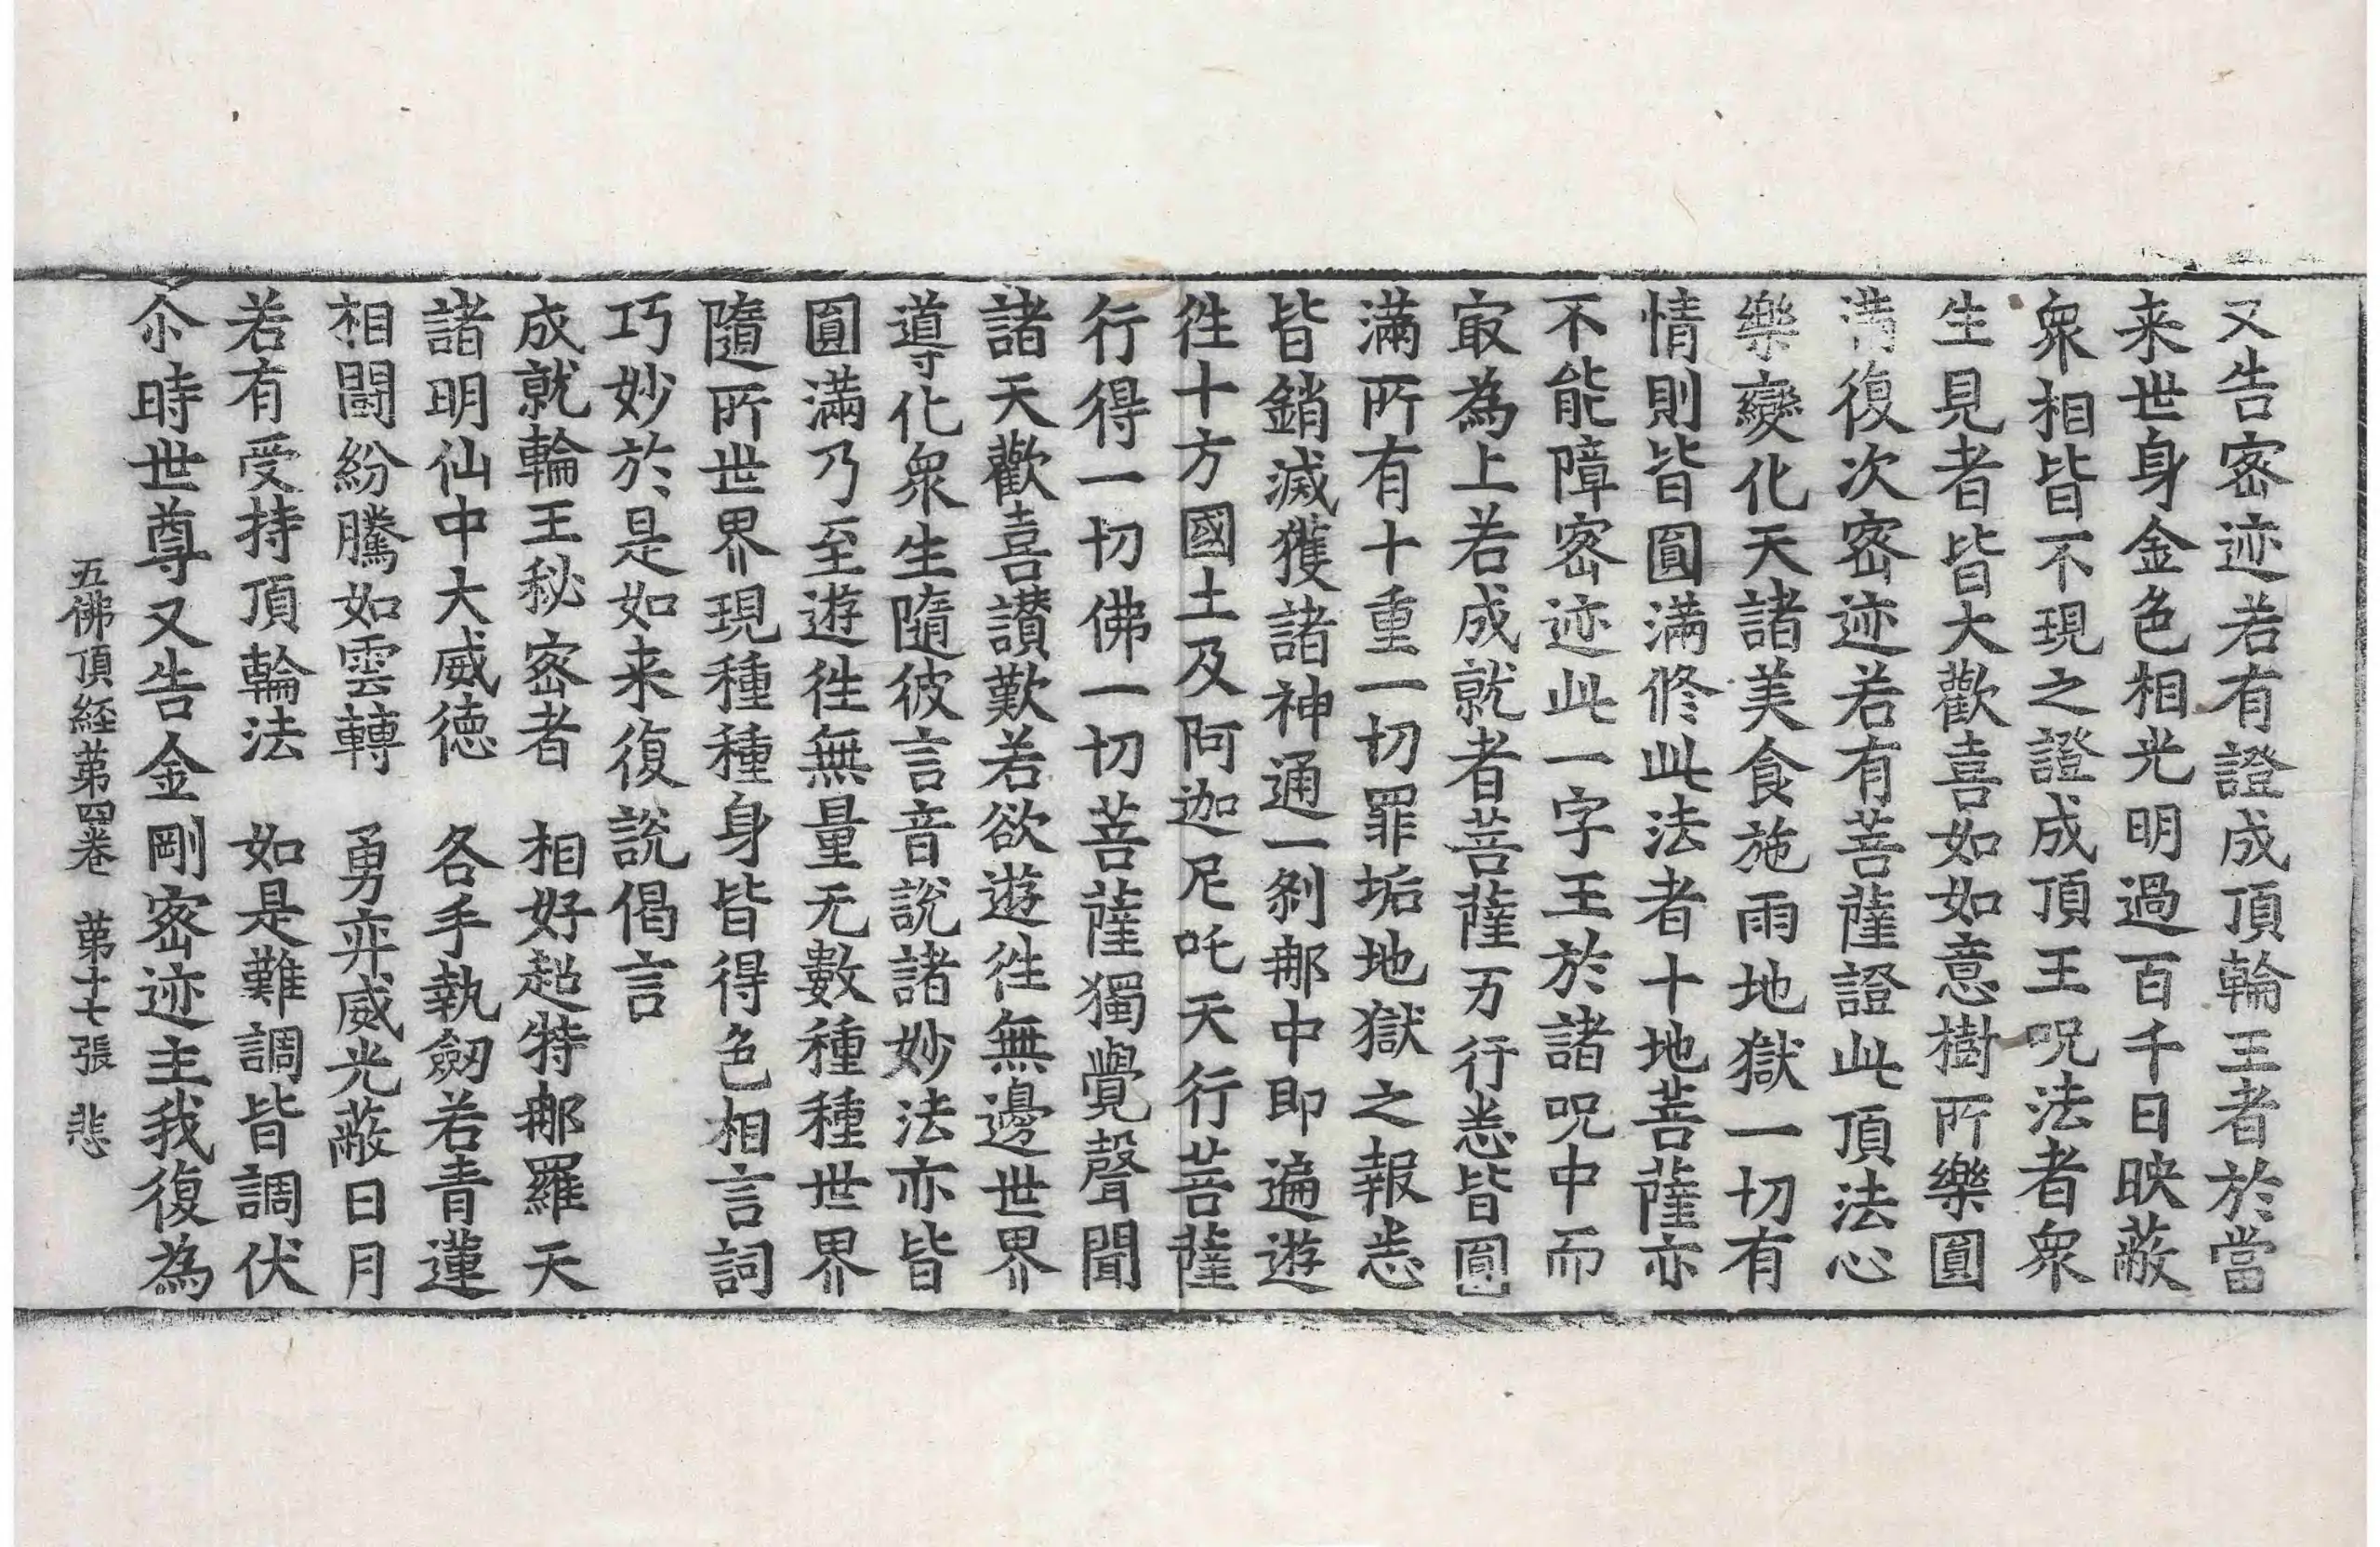 又告宻迹若有證成頂輪王者於當
来世身金色相光明過百千日映蔽
衆相皆不現之證成頂王呪法者衆
生見者皆大歡喜如如意樹所樂圓
满復次宻迹若有菩薩證此頂法心
樂變化天諸美食施雨地獄一切有
情則皆圓滿修此法者十地菩薩亦
不能障宻迹此一字王於諸呪中而
㝡為上若成就者菩薩万行悉皆圓
滿所有十重一切罪垢地獄之報悉
皆銷滅獲諸神通一剎那中即遍遊
徃十方國土及阿迦尼吒天行菩薩
行得一切佛一切菩薩獨覺聲聞
諸天歡喜讃歎若欲遊徃無邊世界
導化衆生隨彼言音說諸妙法亦皆
圓滿乃至遊徃無量无數種種世界
隨所世界現種種身皆得色相言詞
巧妙於是如来復說偈言
成就輪王秘宻者　相好超特那羅天
諸明仙中大威德　各手執劒若青蓮
相鬪紛騰如雲轉　勇弈威光蔽日月
若有受持頂輪法　如是難調皆調伏
尒時世尊又告金剛宻迹主我復為
五佛頂経第四卷　第十七張　悲